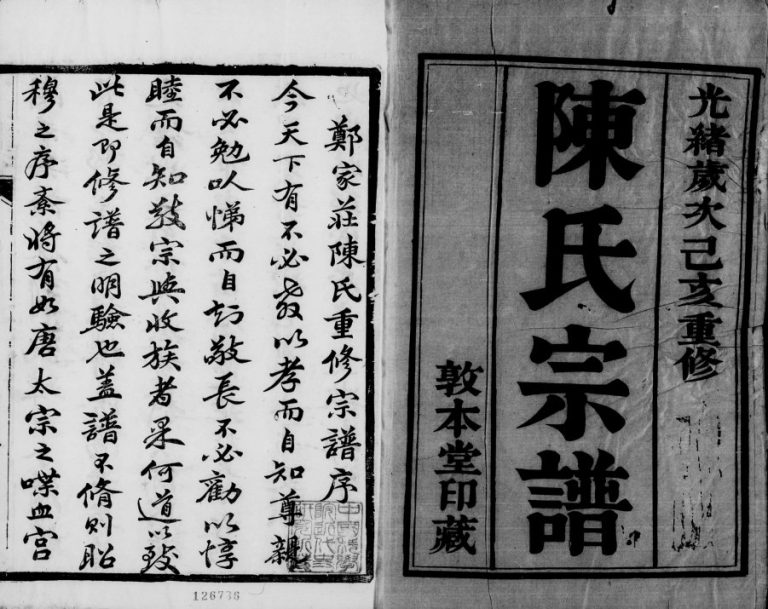 光緒歲次己亥重修
陳氏宗譜
敦本堂印藏
鄭家莊陳氏重修宗譜序
今天下有不必教以孝而自知尊親
不必勉以悌而自知敬長不必勸以惇
睦而自知敬宗與收族者果何道以致
此是即修譜之明驗也蓋譜不脩則昭
穆之序紊將有如唐太宗之喋血宮
126736